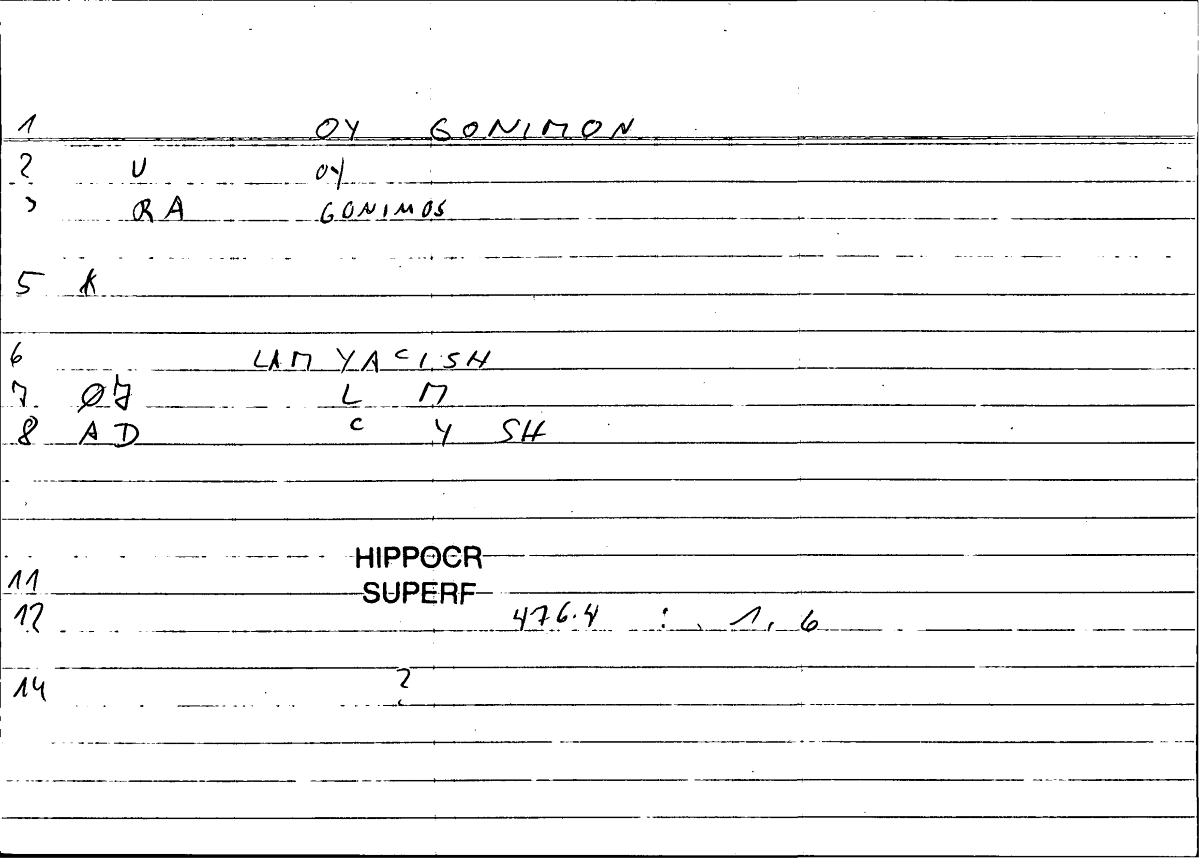 1 OY GONIMON
2 U OY
3 RA GONIMOS
5 K
6 LAM YAcISH
7 ØJ L M
8 AD c Y SH
HIPPOCR
11 SUPERF
12 476.4 : 1, 6
14 ?